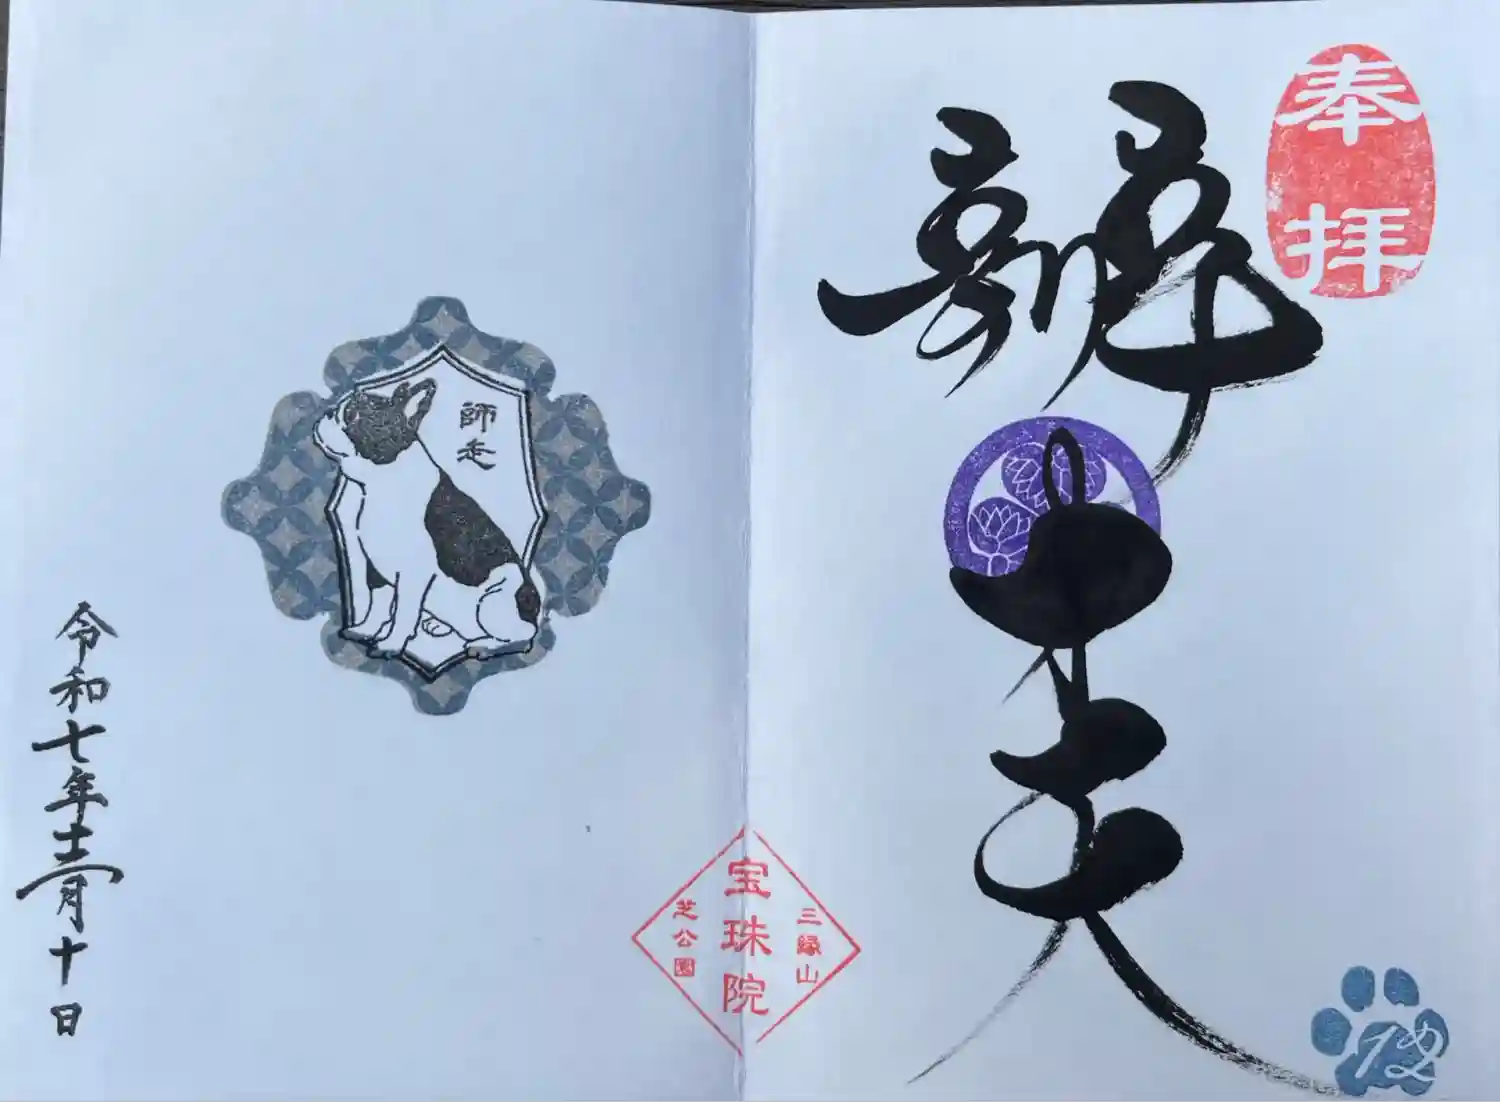 奉拝
辨才天
三縁山
宝珠院
芝公園
師走
令和七年十二月十日
12